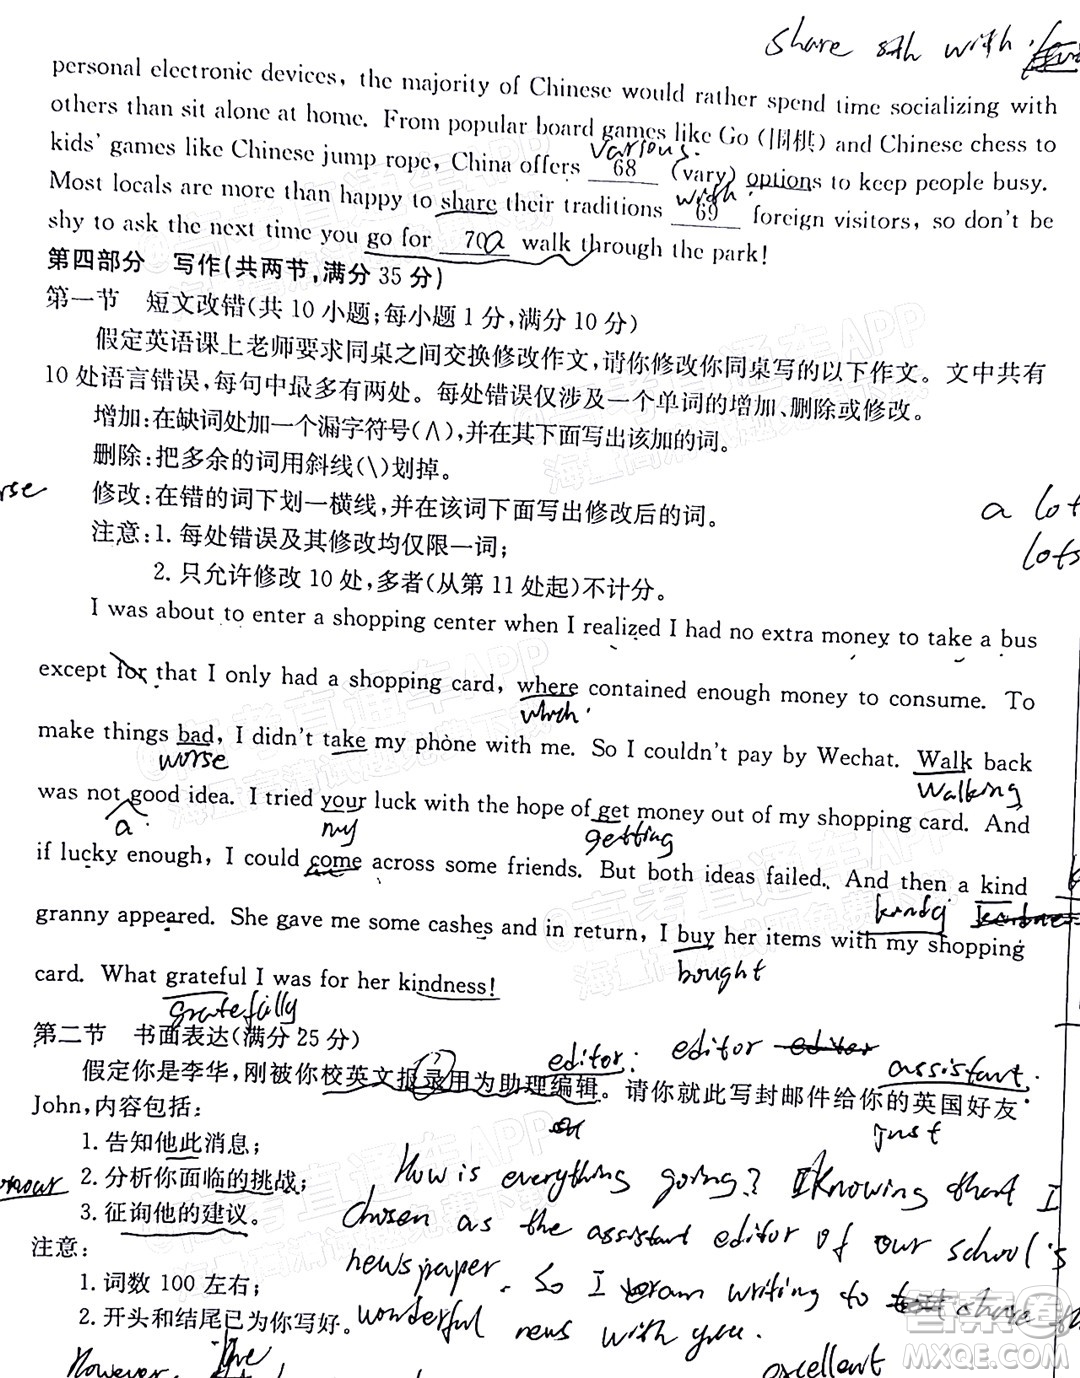 share sth with
personal electronic devices, the majority of Chinese would rather spend time socializing with
others than sit alone at home. From popular board games like Go (围棋) and Chinese chess to
various
kids' games like Chinese jump rope, China offers 68 (vary) options to keep people busy.
with
Most locals are more than happy to share their traditions 69 foreign visitors, so don't be
shy to ask the next time you go for 70 a walk through the park!
第四部分 写作(共两节,满分35分)
第一节 短文改错(共10小题;每小题1分,满分10分)
假定英语课上老师要求同桌之间交换修改作文,请你修改你同桌写的以下作文。文中共有
10处语言错误,每句中最多有两处。每处错误仅涉及一个单词的增加、删除或修改。
增加:在缺词处加一个漏字符号(∧),并在其下面写出该加的词。
删除:把多余的词用斜线(\)划掉。
修改:在错的词下划一横线,并在该词下面写出修改后的词。
a lot
注意:1. 每处错误及其修改均仅限一词;
lots
2. 只允许修改10处,多者(从第11处起)不计分。
I was about to enter a shopping center when I realized I had no extra money to take a bus
except for that I only had a shopping card, where contained enough money to consume. To
which
make things bad, I didn't take my phone with me. So I couldn't pay by Wechat. Walk back
worse walking
was not good idea. I tried your luck with the hope of get money out of my shopping card. And
a my getting
if lucky enough, I could come across some friends. But both ideas failed. And then a kind
granny appeared. She gave me some cashes and in return, I buy her items with my shopping
bought
card. What grateful I was for her kindness!
gratefully
第二节 书面表达(满分25分)
editor editor editor
假定你是李华,刚被你校英文报录用为助理编辑。请你就此写封邮件给你的英国好友
assistant
John,内容包括:
just
1. 告知他此消息;
2. 分析你面临的挑战;
3. 征询他的建议。
注意:
1. 词数100左右;
2. 开头和结尾已为你写好。
How is everything going? Knowing that I
chosen as the assistant editor of our school's
newspaper. So I am writing to share
wonderful news with you.
However, the
excellent
答案圈
MXQE.COM